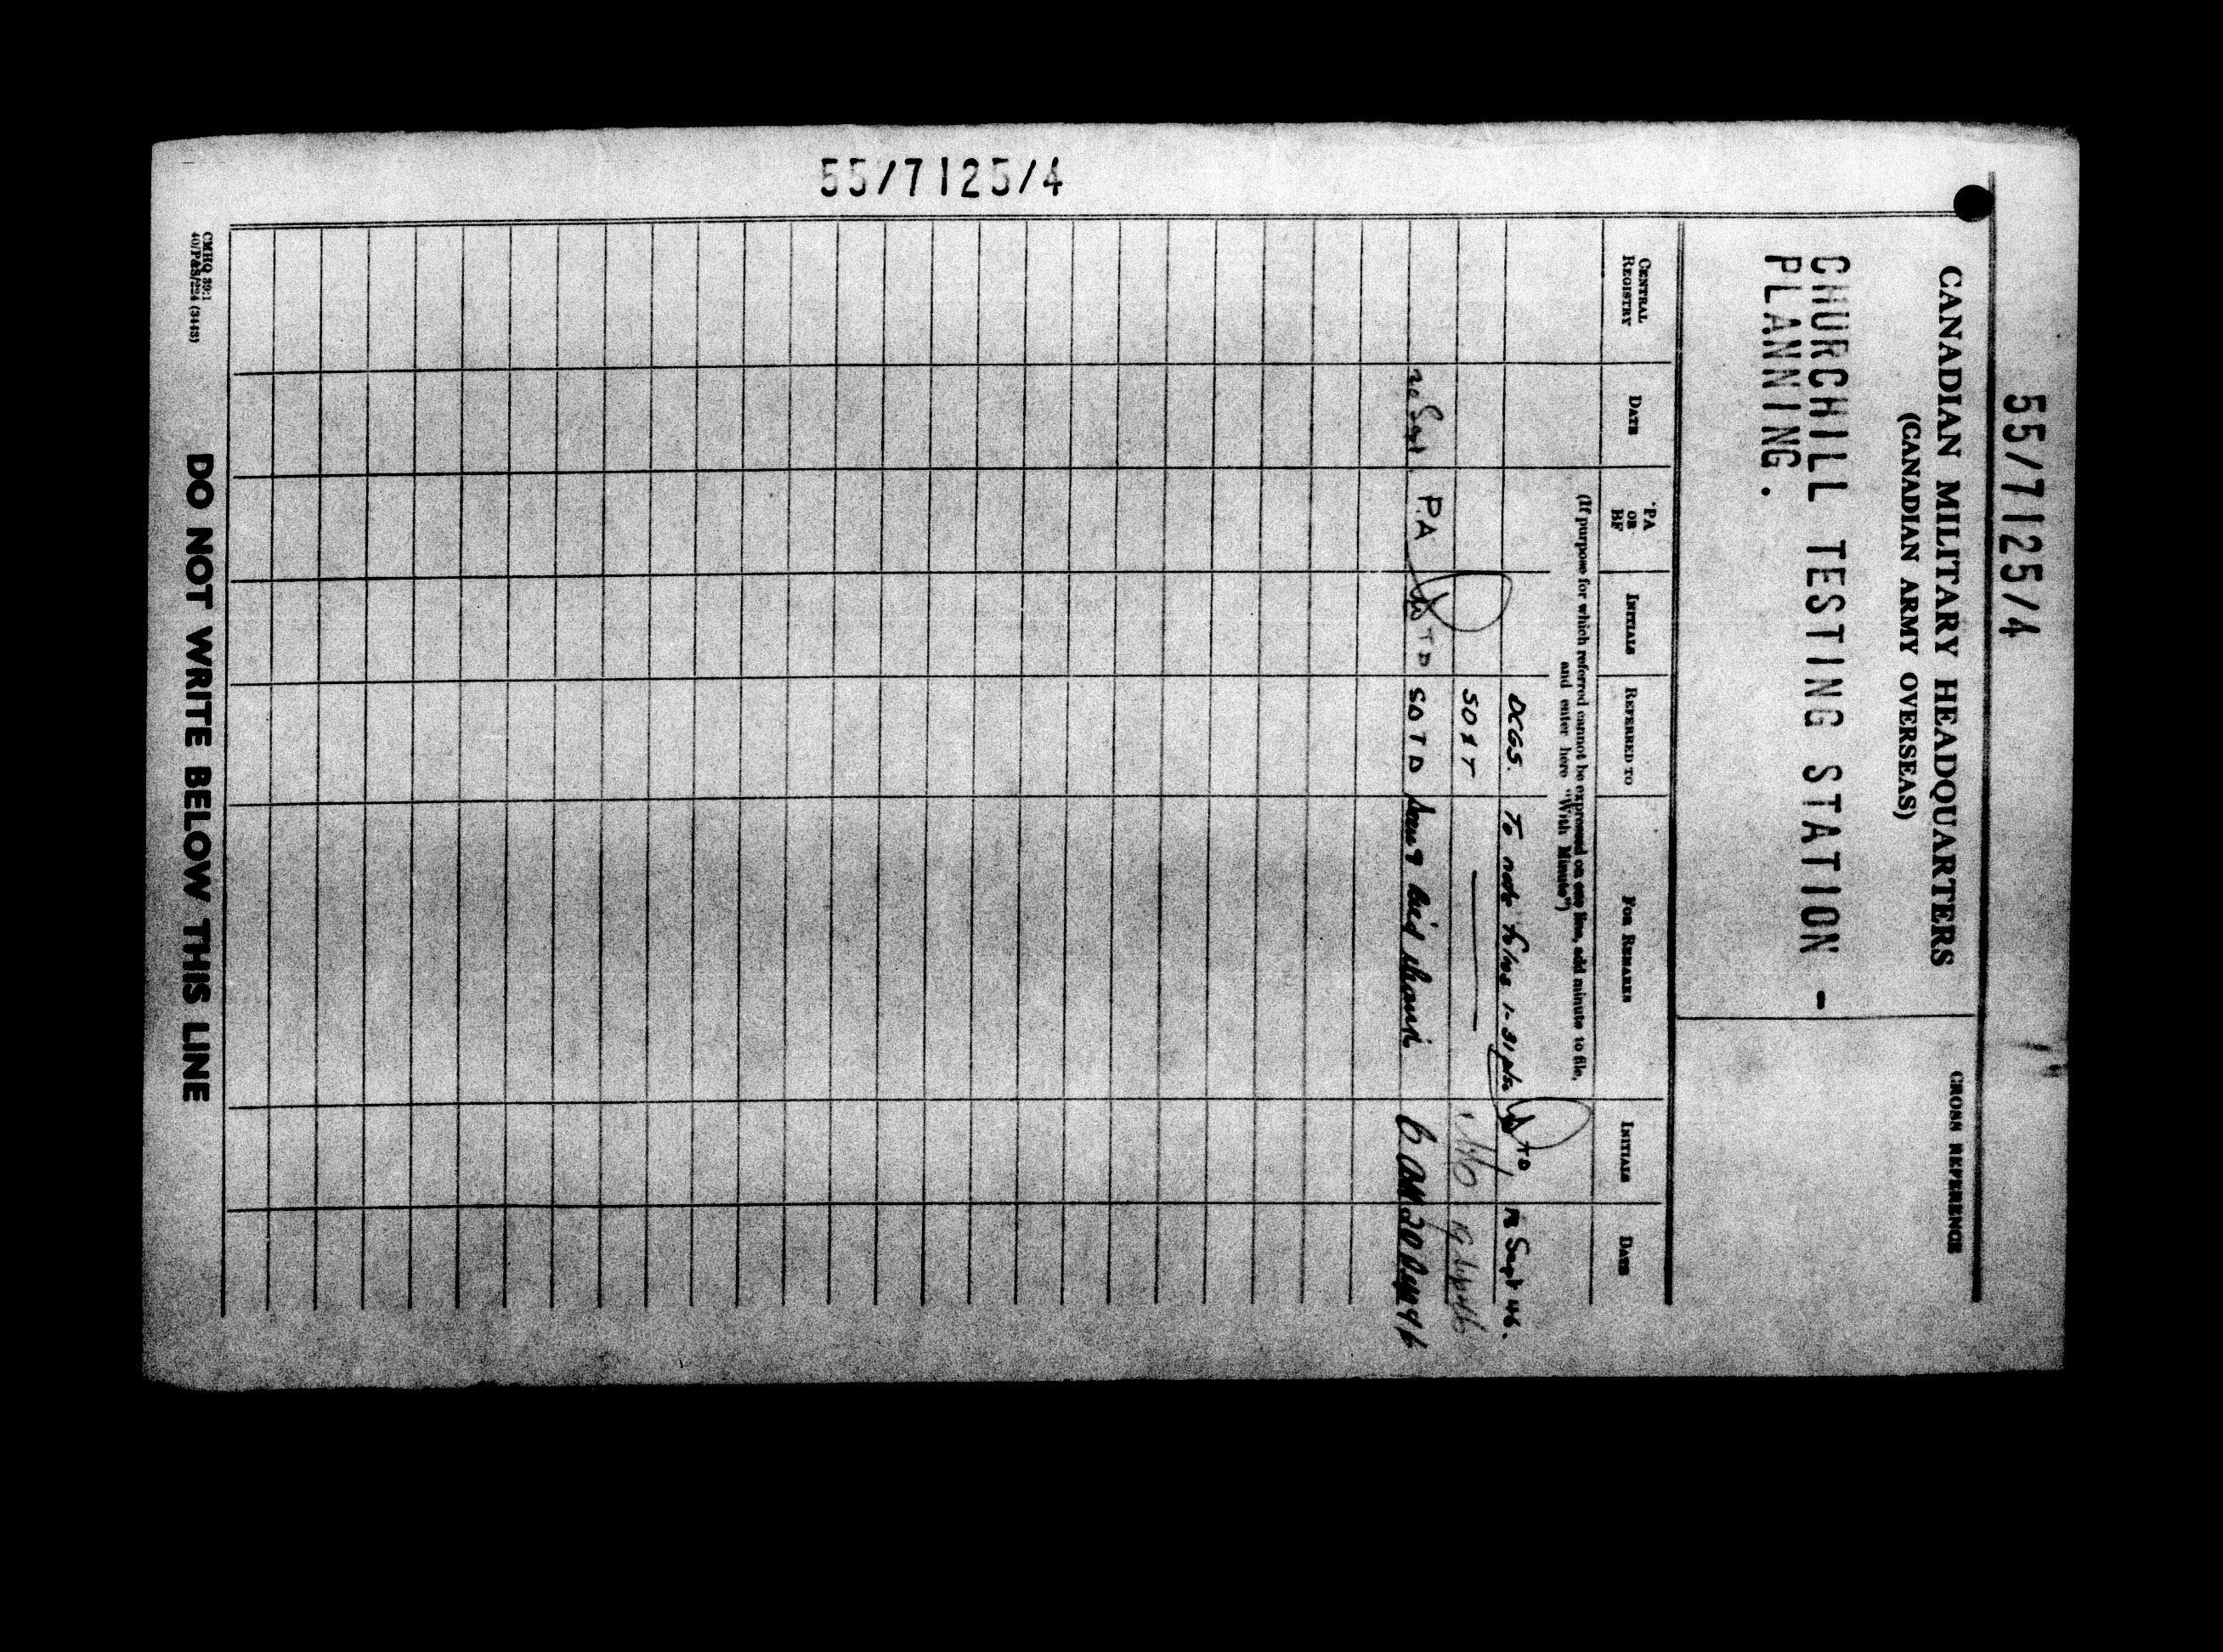 55/7125/4
55/7125/4
CANADIAN MILITARY HEADQUARTERS
(CANADIAN ARMY OVERSEAS)
CROSS REFERENCE
CHURCHILL TESTING STATION -
PLANNING.
CENTRAL REGISTRY
DATE
*PA OR BF
INITIALS
REFERRED TO
FOR REMARKS
INITIALS
DATE
(If purpose for which referred cannot be expressed on one line, add minute to file,
and enter here "With Minute")
DCGS. To note folios 1-31 pls TD Sept 46.
SD&T
20 Sept P.A TD SDTD
DO NOT WRITE BELOW THIS LINE
CMHQ 39:1
40/P&S/224 (3443)